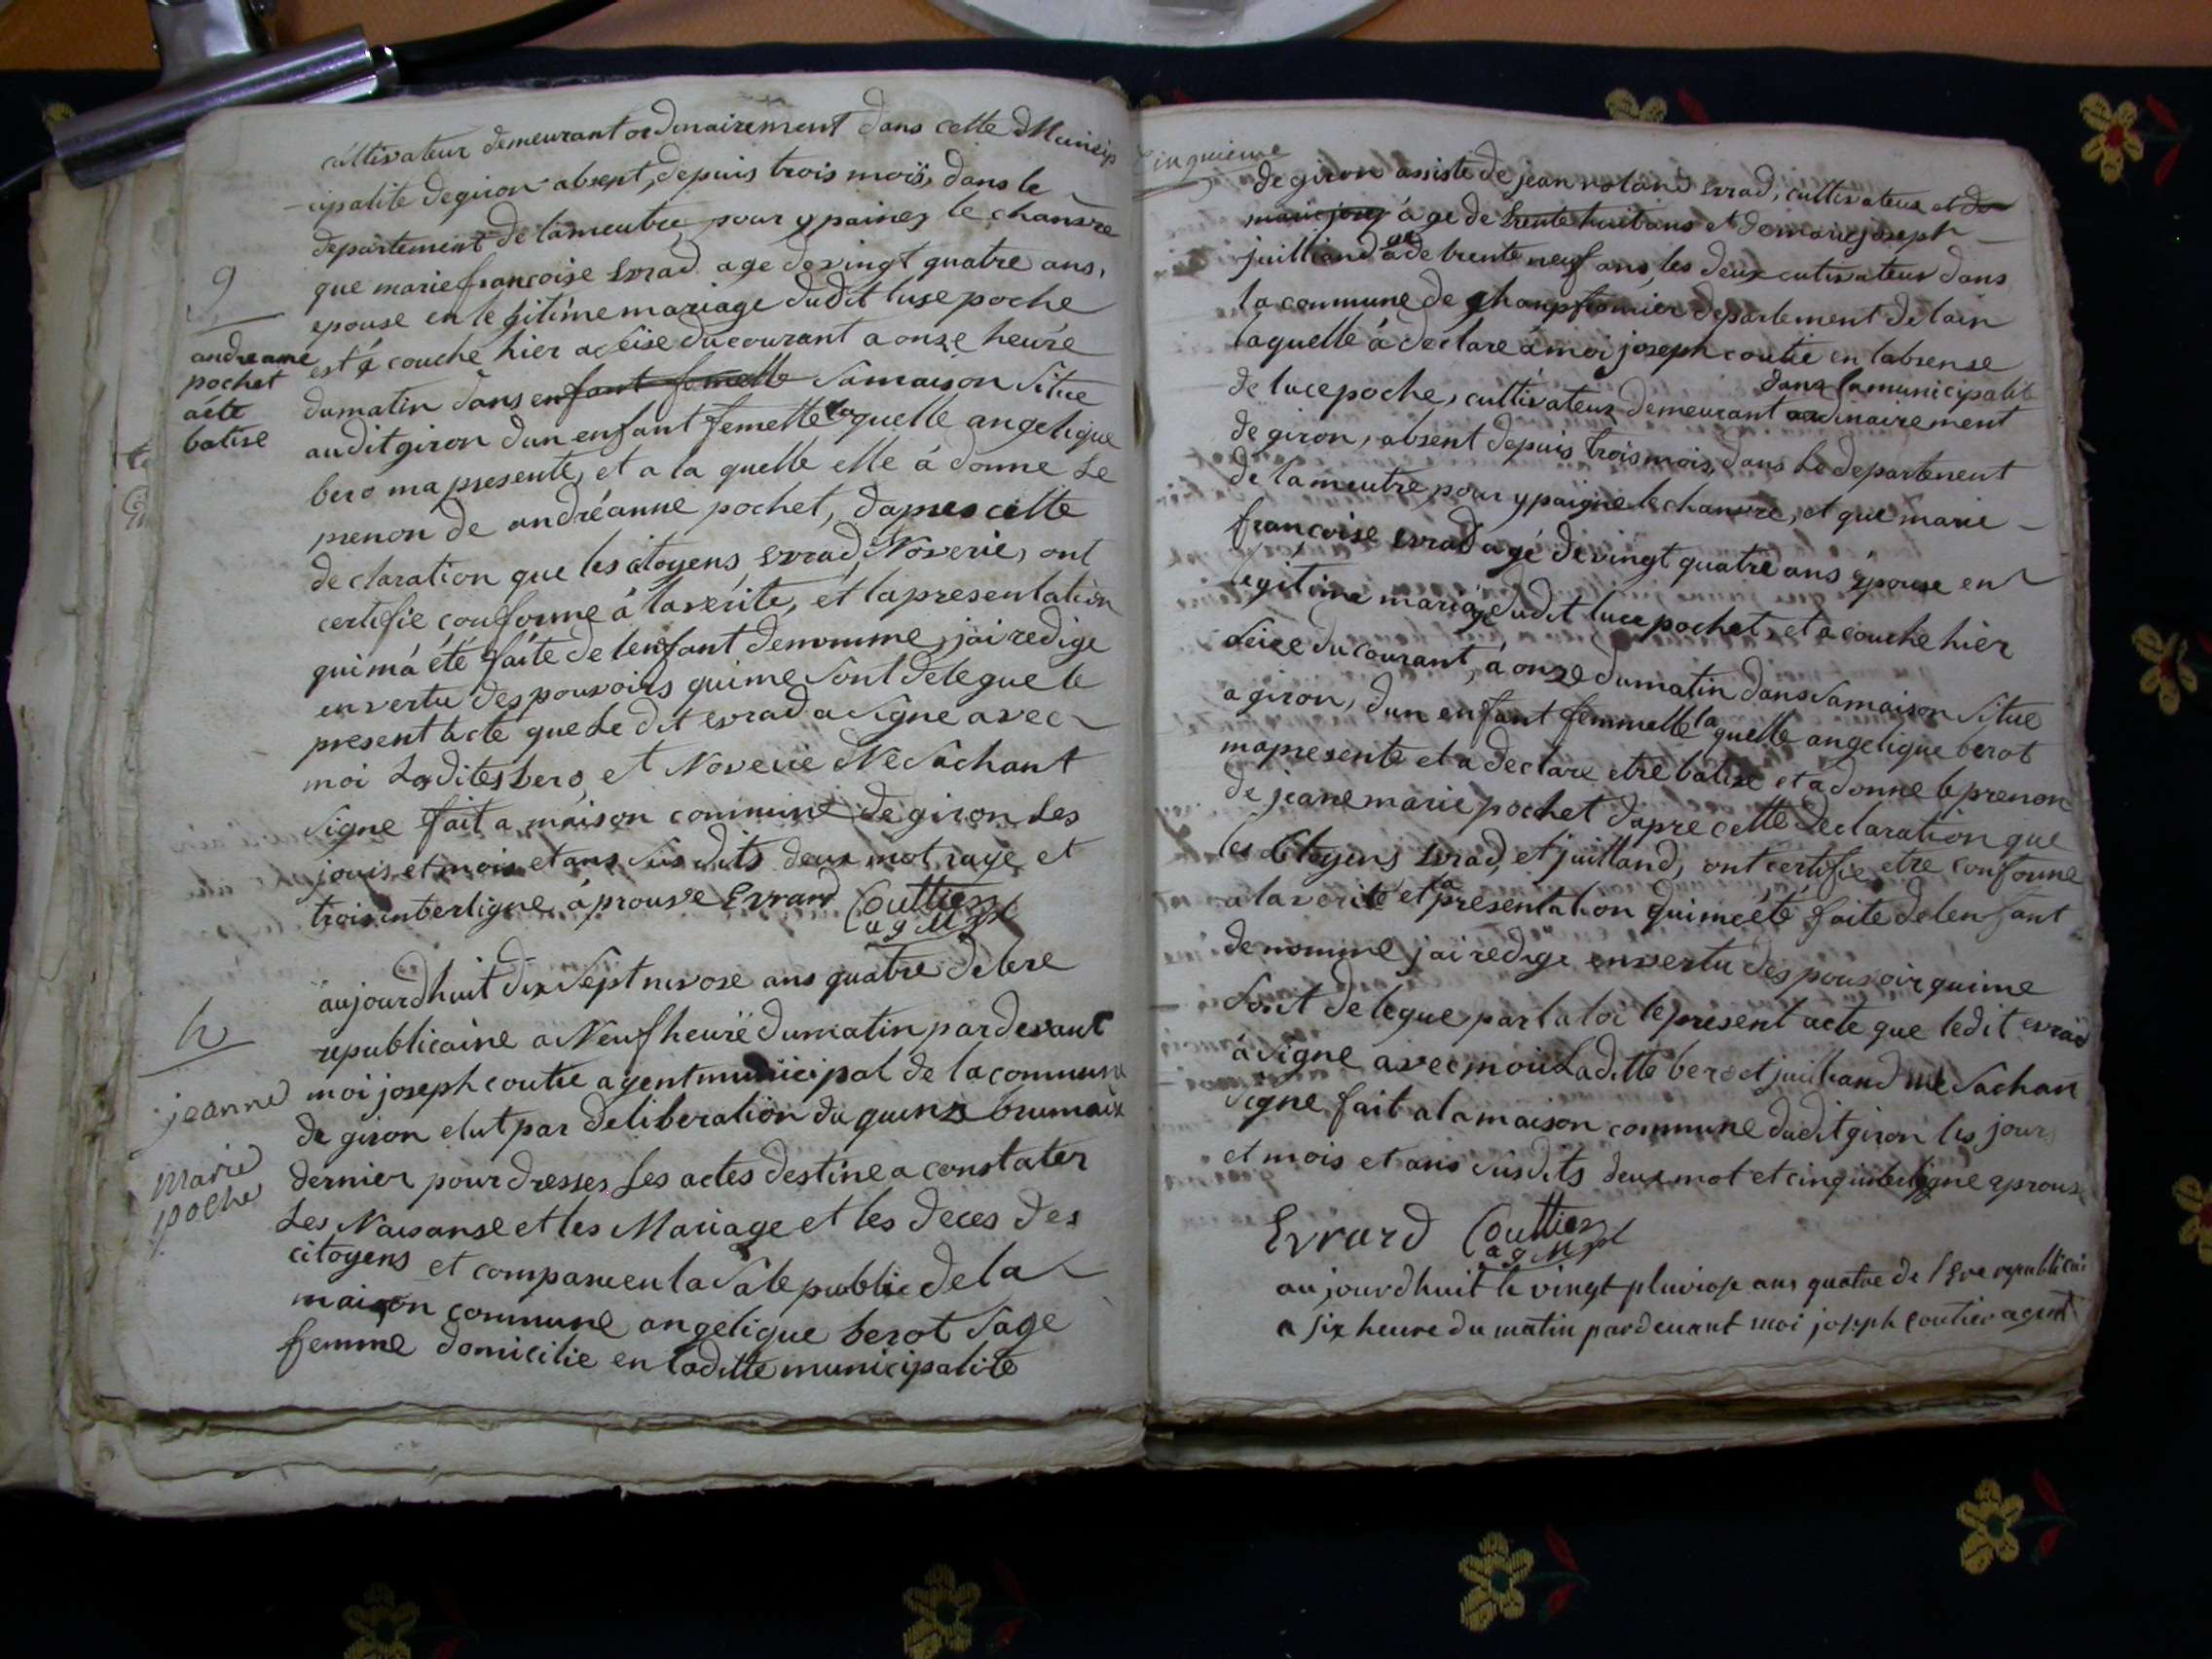 cultivateur demeurant ordinairement dans cette Municip
cipalite degiron absent, depuis trois mois, dans le
departement de lameutre, pour y paines le chanvre
que marie francoise Evrad age de vingt quatre ans,
epouse en legitime mariage dudit luse poche
est é couche hier aseise ducourant a onze heure
dumatin dans enfant femelle Samaison Situe
audit giron dun enfant femelle laquelle angelique
bero ma presente, et a la quelle elle á donne Le
prenon de andréanne pochet, dapres cette
declaration que les citoyens Evrad, Noverie, ont
certifie conforme á laverite, et lapresentation
qui má été faite de lenfant denomme, jai redige
envertu des pouvoirs quime Sont delegue le
present acte que Le dit Evrad a Signe avec
moi Ladites bero, et Noverie Ne Sachant
Signe fait a maison commune de giron Les
jouis et mois et ans Sus dits deux mot raye et
trois interligne áprouve Evrard Couttier
ag Mpl
9
andreanne
pochet
acte
batise
aujourdhuit dix Sept nivose ans quatre de lere
republicaine a Neuf heure dumatin pardevant
moi joseph coutie agent municipal de la commune
de giron elut par deliberation du quinze brumaire
dernier pour dresses Les actes destine a constater
Les Naisanse et les Mariage et les deces des
citoyens et comparu en la Sale public de la
maison commune angelique berot Sage
femme domicilie en laditte municipalite
h
jeanne
marie
poche
cinquieme
de giron assiste de jean roland Evrad, cultivateur et de
marie josep áge de trente huit ans et de marie joseph
juilliand age de trente neuf ans, les deux cutivateur dans
la commune de champfromier departement de lain
laquelle á déclare á moi joseph coutie en labsense
de luce poche, cultivateur demeurant ordinairement dans lamunicipalite
de giron, absent depuis trois mois, dans Le departement
de lameutre, pour y paigne le chanvre, et que marie
francoise Evrad agé de vingt quatre ans épouse en
legitime mariage dudit luce pochet, et a couche hier
Seize du courant, á onze dumatin dans Samaison Situe
a giron, dun enfant femmelle la quelle angelique berot
mapresente et a declare etre batise et a donne le prenon
de jeane marie pochet dapre cette declaration que
les Citoyens Evrad, et juilland, ont certifie etre conforme
a la verite et la presentation quimeété faite de lenfant
denomme jai redige envertu des pouvoir quime
Sont delegue par la loi le present acte que ledit evrad
á Signe avec moi Laditte bero et juilliand Ne Sachan
Signe, fait a la maison commune dudit giron les jours
et mois et ans Susdits deux mot et cinq interligne aprouve
Evrard Couttier
ag Mpl
aujourdhuit le vingt pluviose ans quatre de lere republicai
a six heure du matin pardevant moi joseph coutier agent